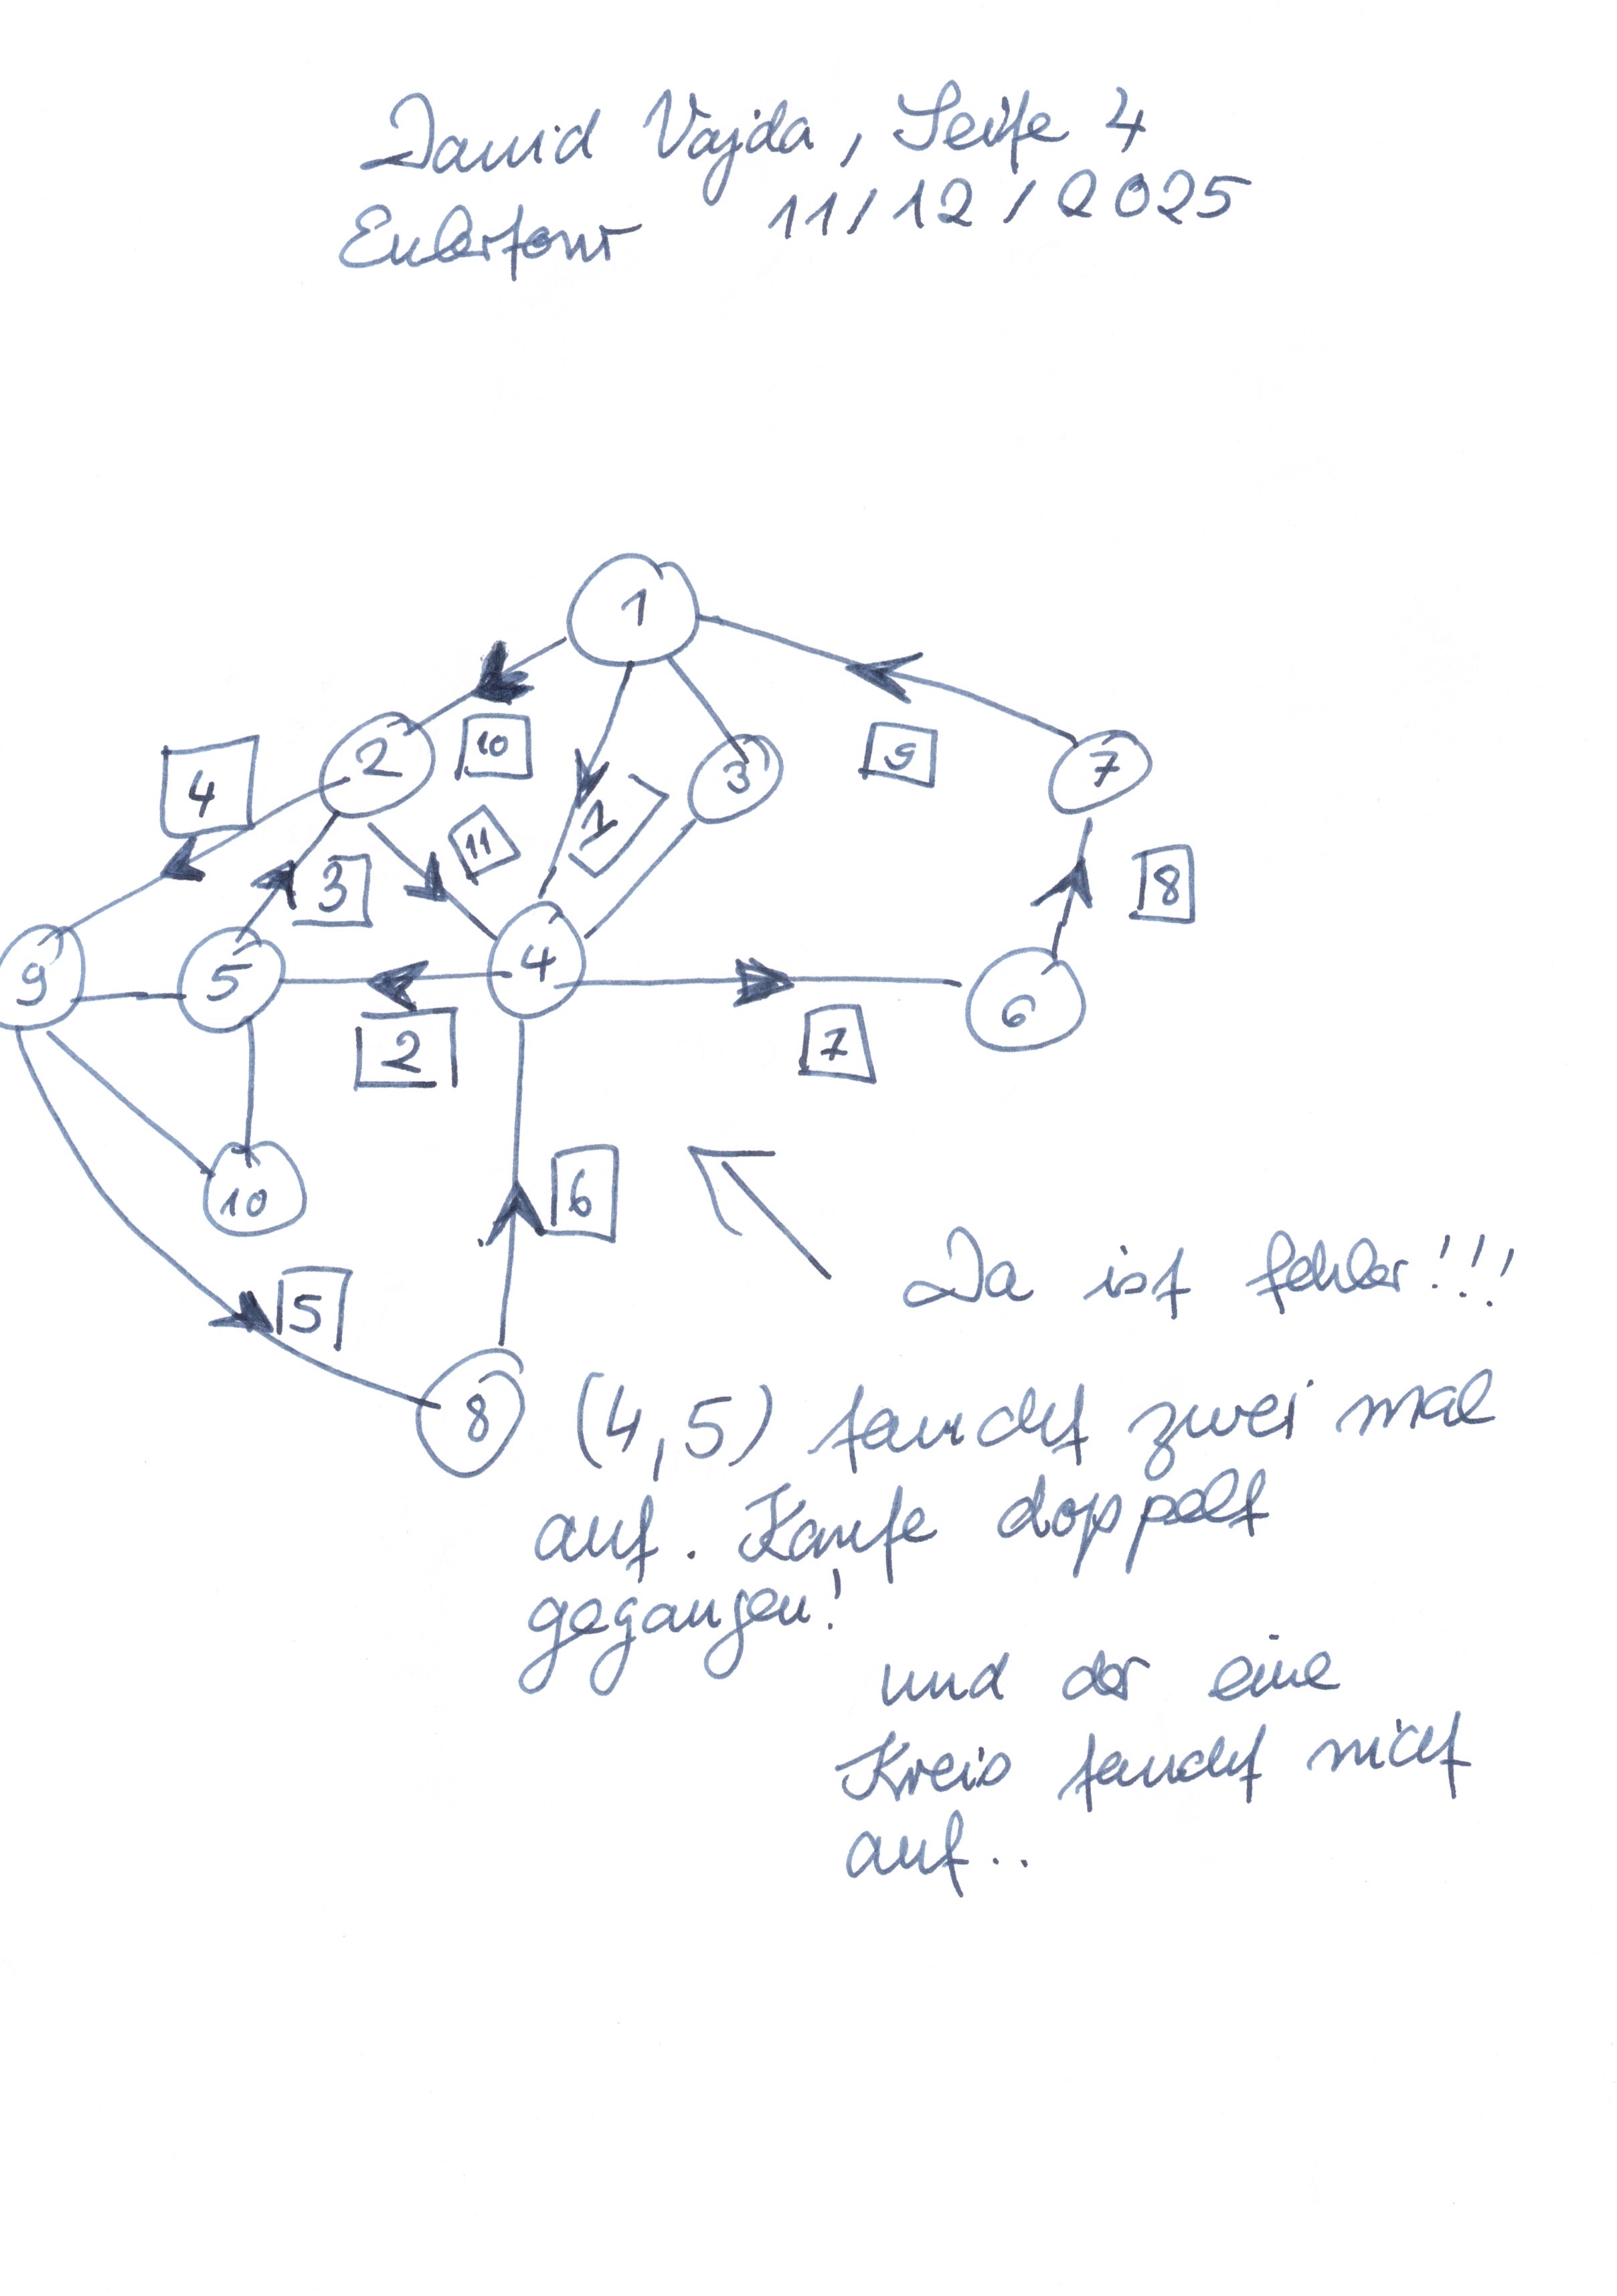 David Vajda, Seite 4
11/12/2025
Eulertour
1
2
10
3
9
7
4
1
11
3
8
9
5
4
6
2
7
10
6
5
8
Da ist fehler!!!
(4,5) taucht zwei mal
auf. Kante doppelt
gegangen!
und der eine
Kreis taucht nicht
auf..